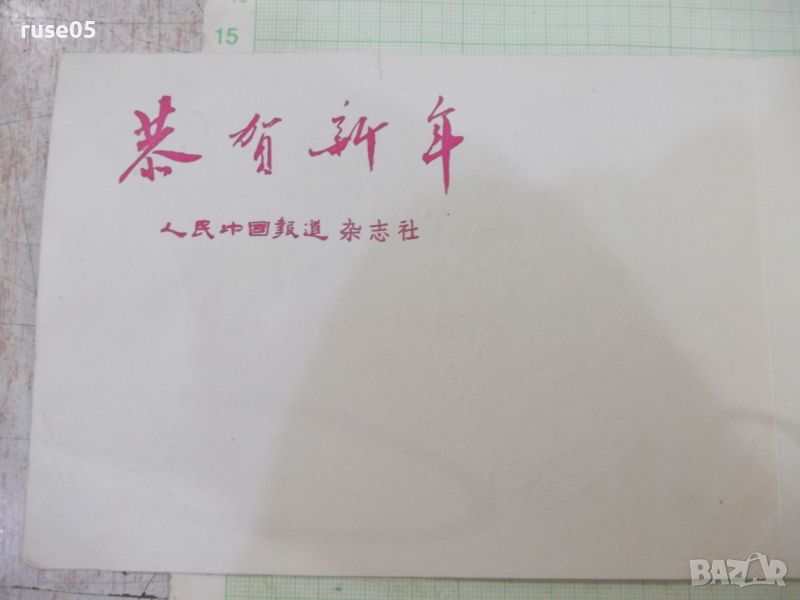 ruse05
15
恭贺新年
人民中國報道 杂志社
BAZAR